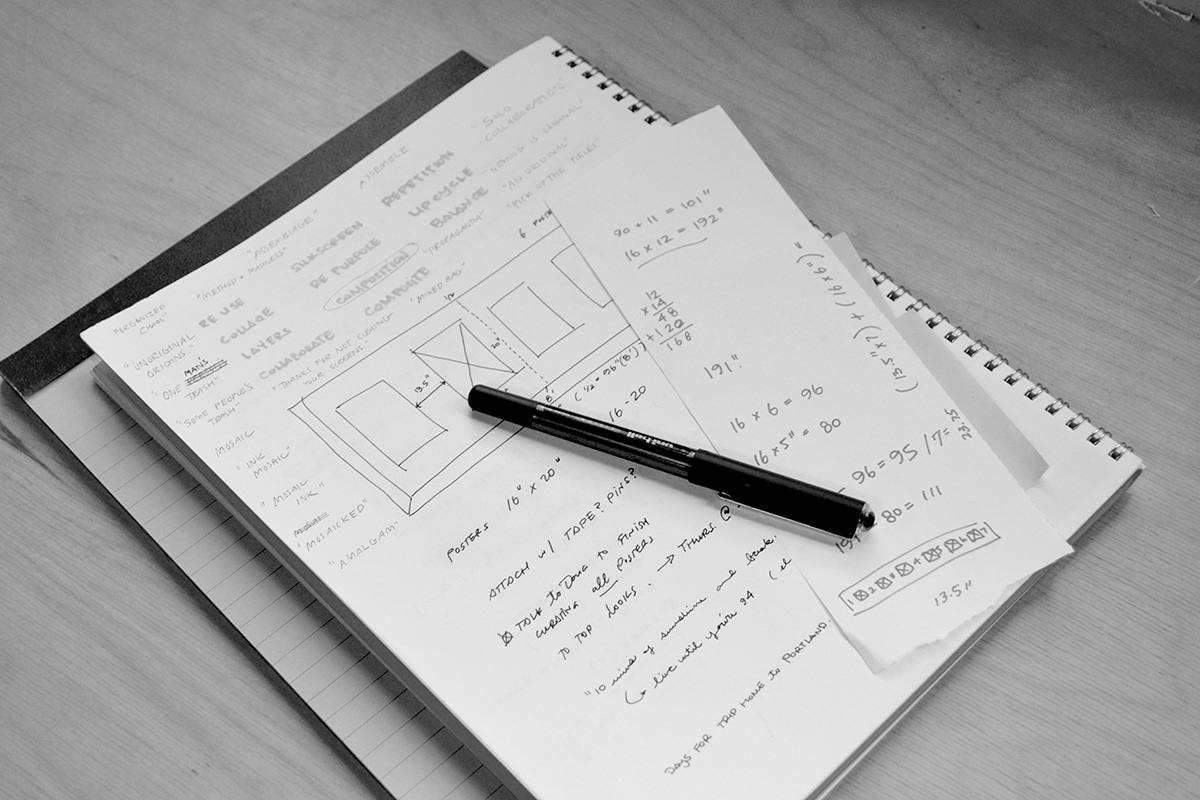 "SOLO
COLLABORATION"
ASSEMBLE
REPETITION
"NOTHING IS ORIGINAL"
"ASSEMBLAGE"
SILKSCREEN
UPCYCLE
"AN ORIGINAL"
"METHOD + MADNESS"
RE PURPOSE
BALANCE
"PICK UP THE PIECES"
"ORGANIZED
CHAOS"
RE USE
COMPOSITION
"PROPAGANDA"
"UNORIGINAL
ORIGINS"
COLLAGE
COMPOSITE
"MIXED BAG"
"ONE MAN'S
TRASH"
LAYERS
COLLABORATE
"SOME PEOPLE'S
TRASH"
"THANKS FOR NOT CLEANING
YOUR SCREENS."
MOSAIC
"INK
MOSAIC"
"MOSAIC
INK"
"MOSAICKED"
"AMALGAM"
1/2
20"
13.5"
8'
(1/2 = 96" (8'))
16 - 20
POSTERS 16" X 20"
ATTACH W/ TAPE? PINS?
TALK TO DOUG TO FINISH
CURATING all POSTERS
TO TOP LOOKS. → THURS. @
"10 mins of sunshine and
live until you're 94
DAYS FOR TRIP HOME TO PORTLAND.
90 + 11 = 101"
16 x 12 = 192"
12
x 14
48
+ 120
168
191"
16 x 6 = 96
16 x 5" = 80
96 = 95 / 7 =
80 = 111
1 2 3 4 5 6 7
13.5"
(13.5" x 7) + (16 x 6 =)
uni-ball